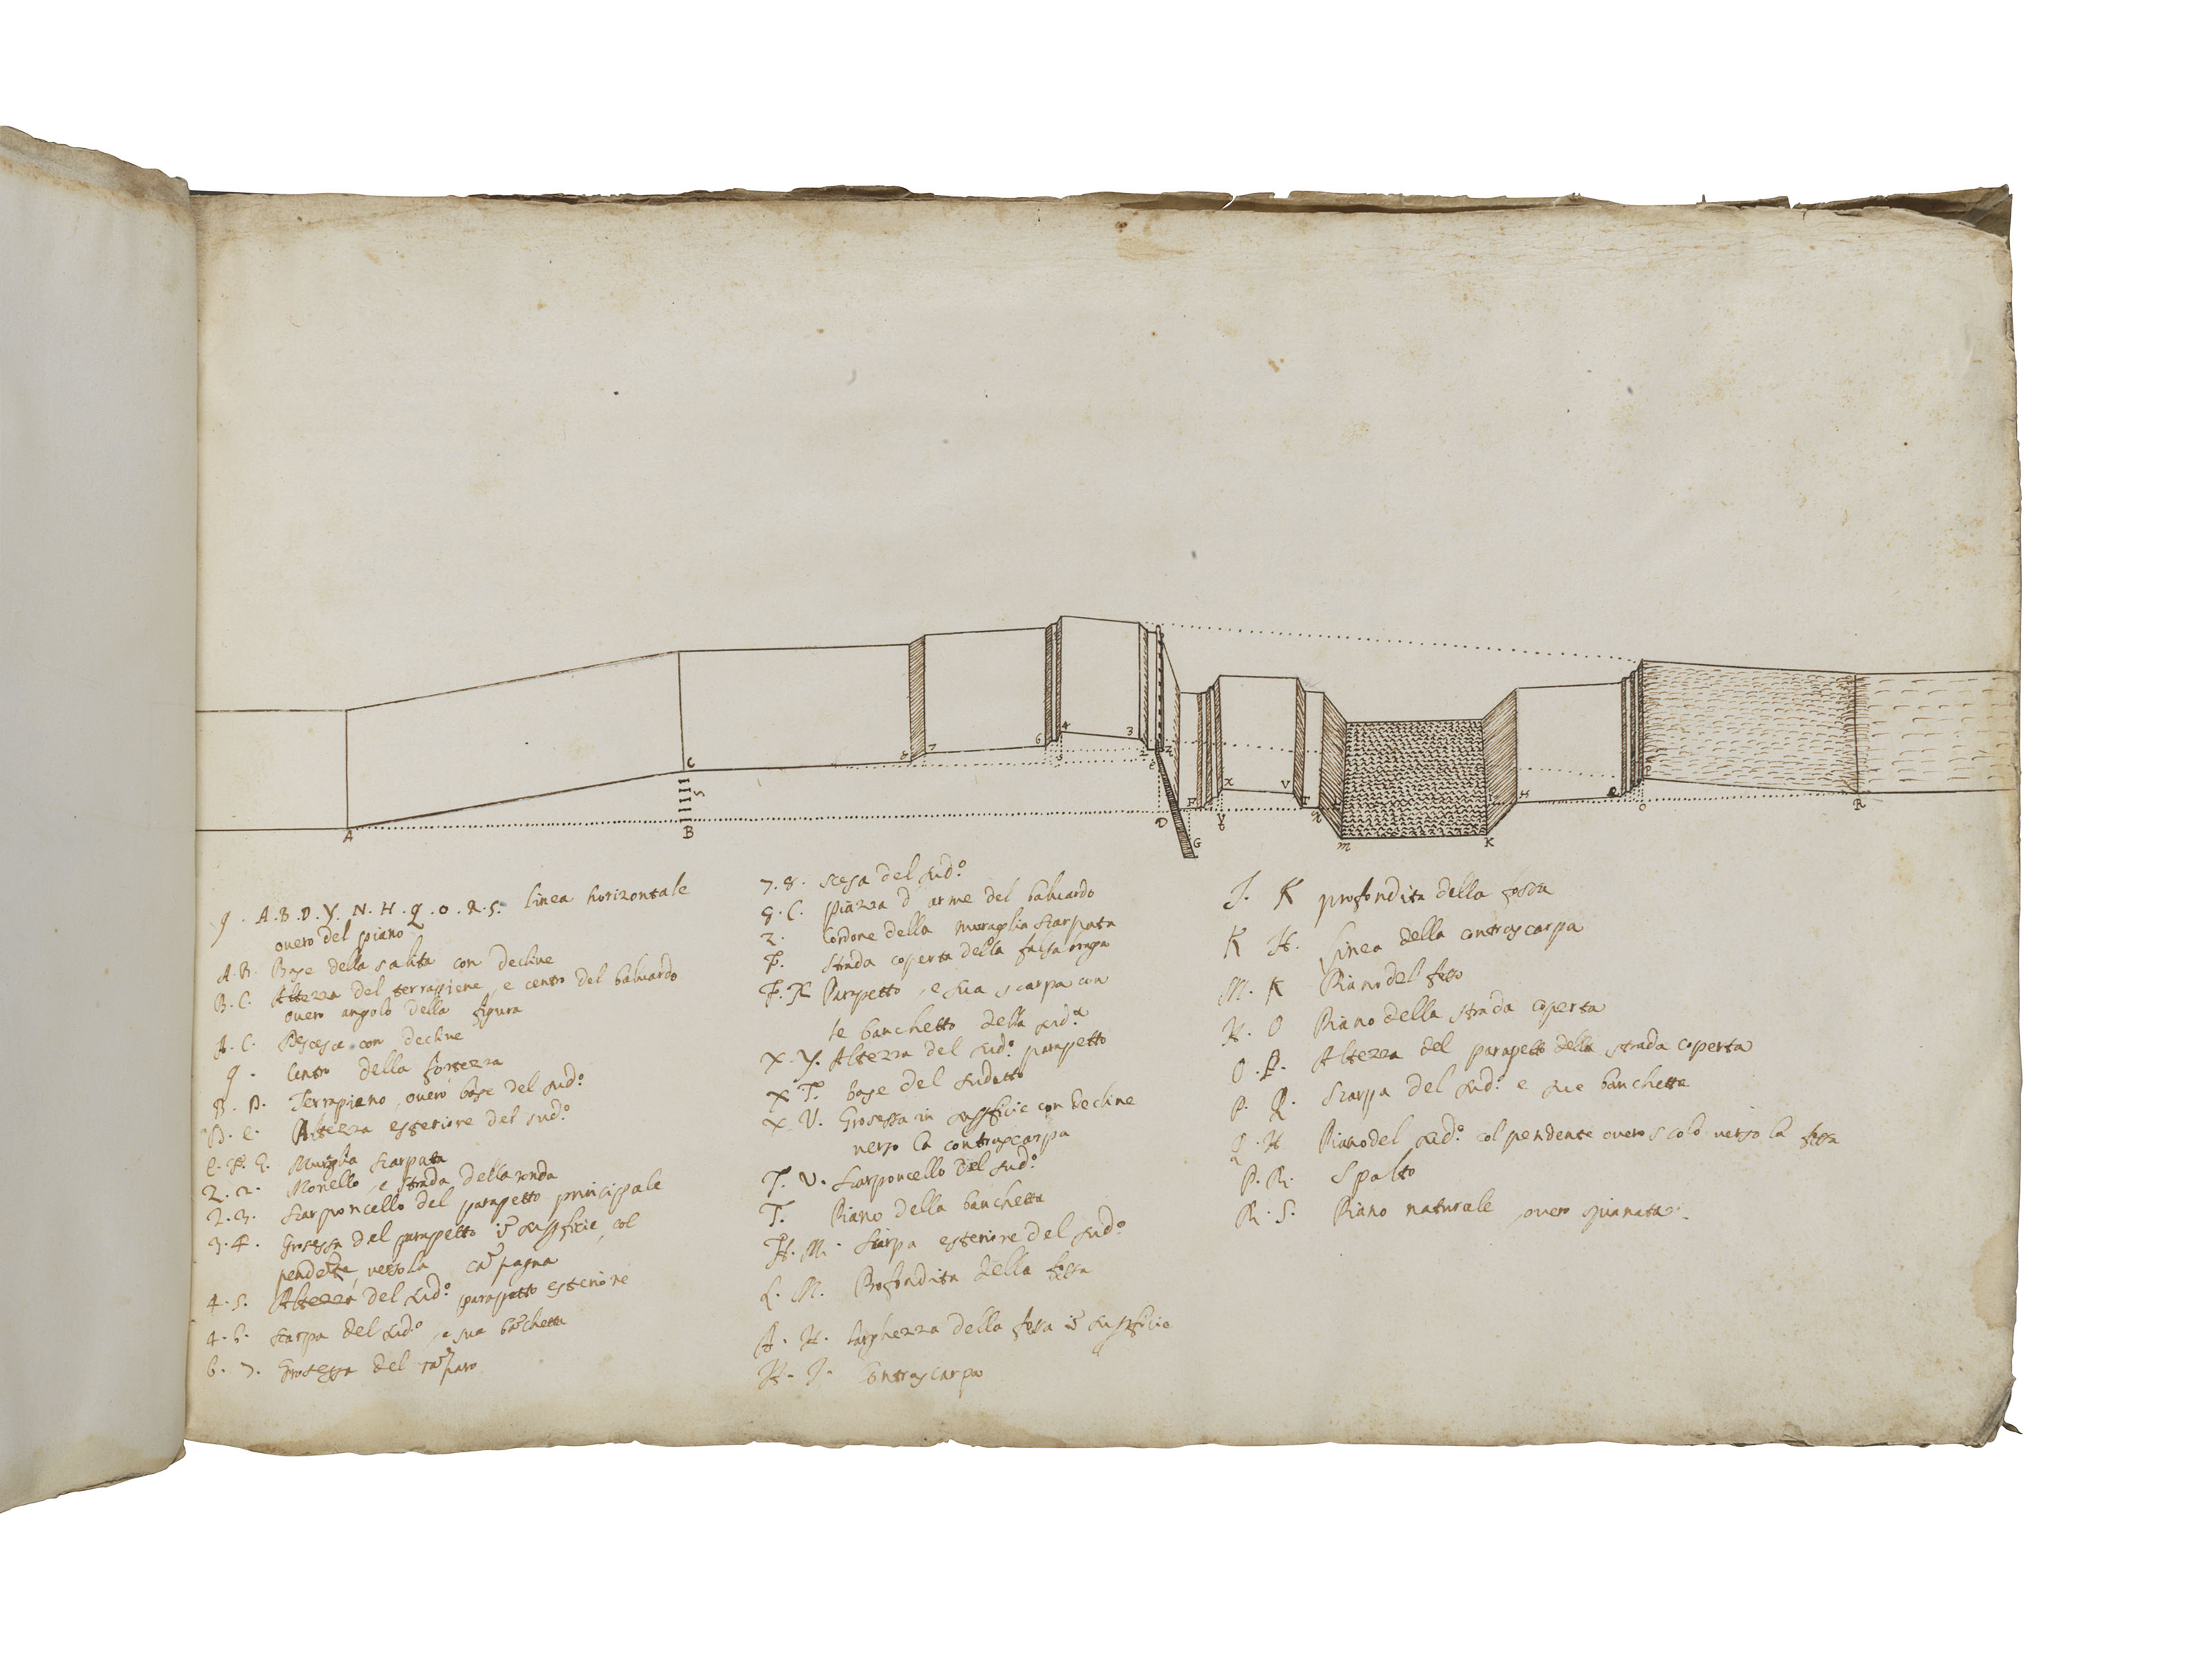 A
B
C
5
8
7
6
4
5
3
2
2
e
D
F
G
X
Y
V
T
m
K
H
O
P
R
g . A.B.D.Y.N.H.Q.O.R.S. linea horizontale
ouero del piano
A.B. Base della salita con decliue
B.C. Altezza del terrapiene, e centro del baluardo
ouero angolo della figura
A.C. con decliue
g . Centro della fortezza
B.D. Terrapieno, ouero base del sud.º
D.e. Altezza esteriore del sud.º
Muraglia scarpata
2.2. Monello, e strada della ronda
2.3. Scarponcello del parapetto principale
3.4. Grosezza del parapetto ĩ supficie, col
pendẽte, verso la cãpagna
4.5. Altezza del sud.º parapetto esteriore
4.6. Scarpa del sud.º, e sua bãchetta
6.7. Grosezza del rãparo
7.8. scesa del sud.º
8.C. Piazza d'arme del baluardo
2. Cordone della muraglia scarpata
F. Strada coperta della falsa braga
F.X Parapetto, e sua scarpa con
le banchette della sud.ª
X.Y. Altezza del sud.º parapetto
X.T. base del sudetto
X.V. Grosezza in supficie con decliue
verso la contrascarpa
T.V. Scarponcello del sud.º
T. Piano della banchetta
Scarpa esteriore del sud.º
L.M. Profondita della fossa
larghezza della fossa ĩ supficie
H.I. Contrascarpa
I. K profondita della fossa
K H. Linea della contrascarpa
M. K Piano del fosso
H. O Piano della strada coperta
O.P. Altezza del parapetto della strada coperta
P. Q. Scarpa del sud.º e sue banchette
Q.H Piano del sud.º col pendente ouero scolo uerso la fossa
P.R. Spalto
R.S. Piano naturale, ouero spianata.